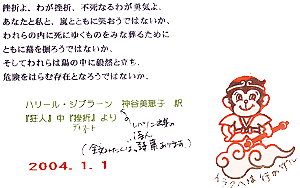 挫折よ、わが挫折、不死なるわが勇気よ、
あなたと私と、嵐とともに笑おうではないか、
われらの内に死にゆくものをみな葬るために
ともに墓を掘ろうではないか、
そしてわれらは陽の中に毅然と立ち、
危険をはらむ存在となろうではないか。
ハリール・ジブラーン 神谷美恵子 訳
『狂人』中『挫折』より
レバノン出身の
詩人
2004.1.1